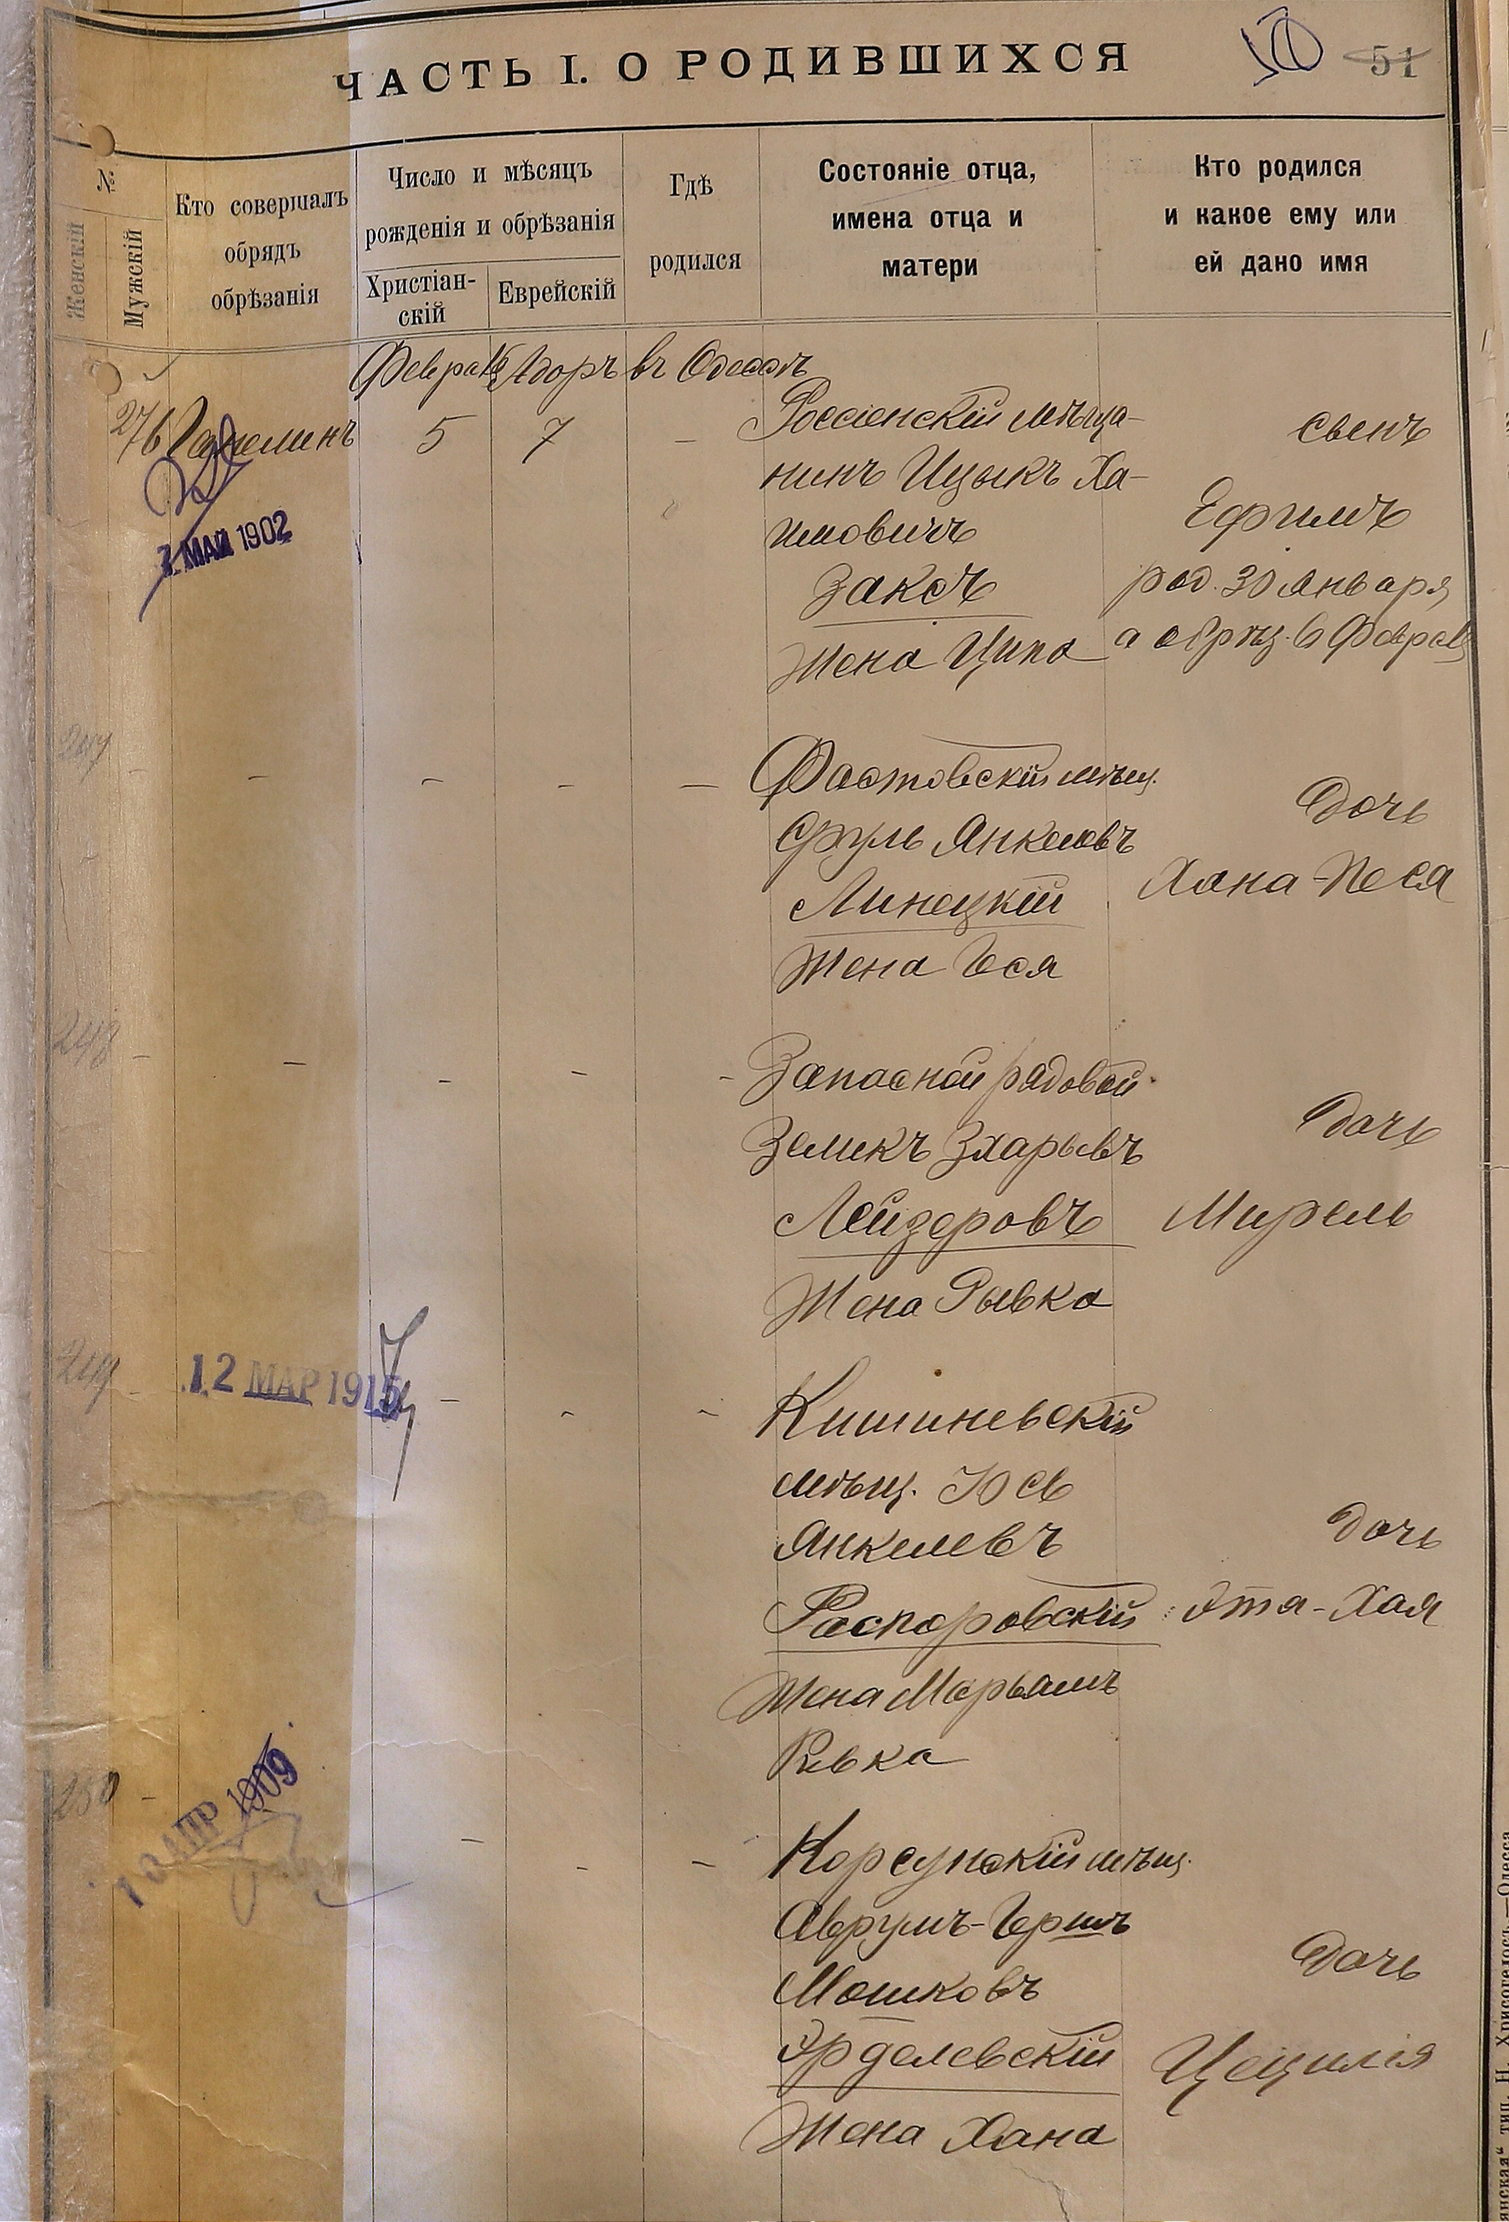 ЧАСТЬ I. О РОДИВШИХСЯ
50 51
№
Женскій
Мужскій
Кто совершалъ
обрядъ
обрѣзанія
Число и мѣсяцъ
рожденія и обрѣзанія
Христіан-
скій
Еврейскій
Гдѣ
родился
Состояніе отца,
имена отца и
матери
Кто родился
и какое ему или
ей дано имя
Адоръ въ Одессѣ
276 5 7 – Россіенскій мѣща-
нинъ Ицыкъ Ха-
имовичъ
Заксъ
Жена Ципа
сынъ
Ефимъ
род. 30 января
а обрѣз. 6
МАЙ 1902
247 – – – – – Фастовскій мѣщ.
Сруль Янкелевъ
Линецкій
Жена Геся
дочь
Хана-Песя
248 – – – – – Запасной рядовой
Зеликъ Зхарьевъ
Лейзеровъ
Жена Рывка
дочь
Мирель
249 – 12 МАР 1915 – – – Кишиневскій
мѣщ. Юсь
Янкелевъ
Распоровскій
Жена Марьямъ
Ривка
дочь
Эта-Хая
250 – АПР 1909 – – – Корсунскій мѣщ.
Аврумъ-Гершъ
Мошковъ
Эрделевскій
Жена Хана
дочь
Цецилія
тип. Н. Хрисогелосъ.—Одесса